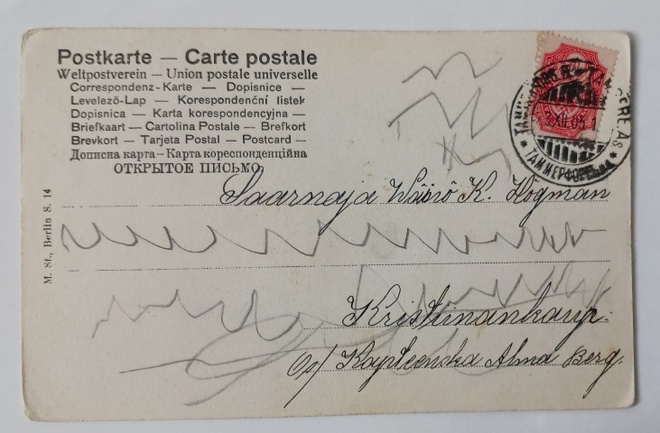 Postkarte — Carte postale
Weltpostverein — Union postale universelle
Correspondenz-Karte — Dopisnice —
Levelező-Lap — Korespondenční listek
Dopisnica — Karta korespondencyjna —
Briefkaart — Cartolina Postale — Brefkort
Brevkort — Tarjeta Postal — Postcard —
Дописна карта — Карта кореспонденційна
ОТКРЫТОЕ ПИСЬМО
M. St., Berlin S. 14
ТАММЕРФОРСЪ
Saarnaja Wäinö K. Högman
Kristiinankaup.
Os/ Alma Berg.